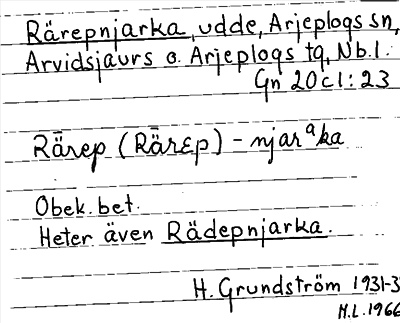 Rärepnjarka, udde, Arjeplogs sn,
Arvidsjaurs o. Arjeplogs tg, Nb.l.
Gn 20c1:23
Rā̈rep (Rā̈rεp) - njarᵃka
Obek. bet.
Heter även Rädepnjarka.
H. Grundström 1931-3
H.L. 1966